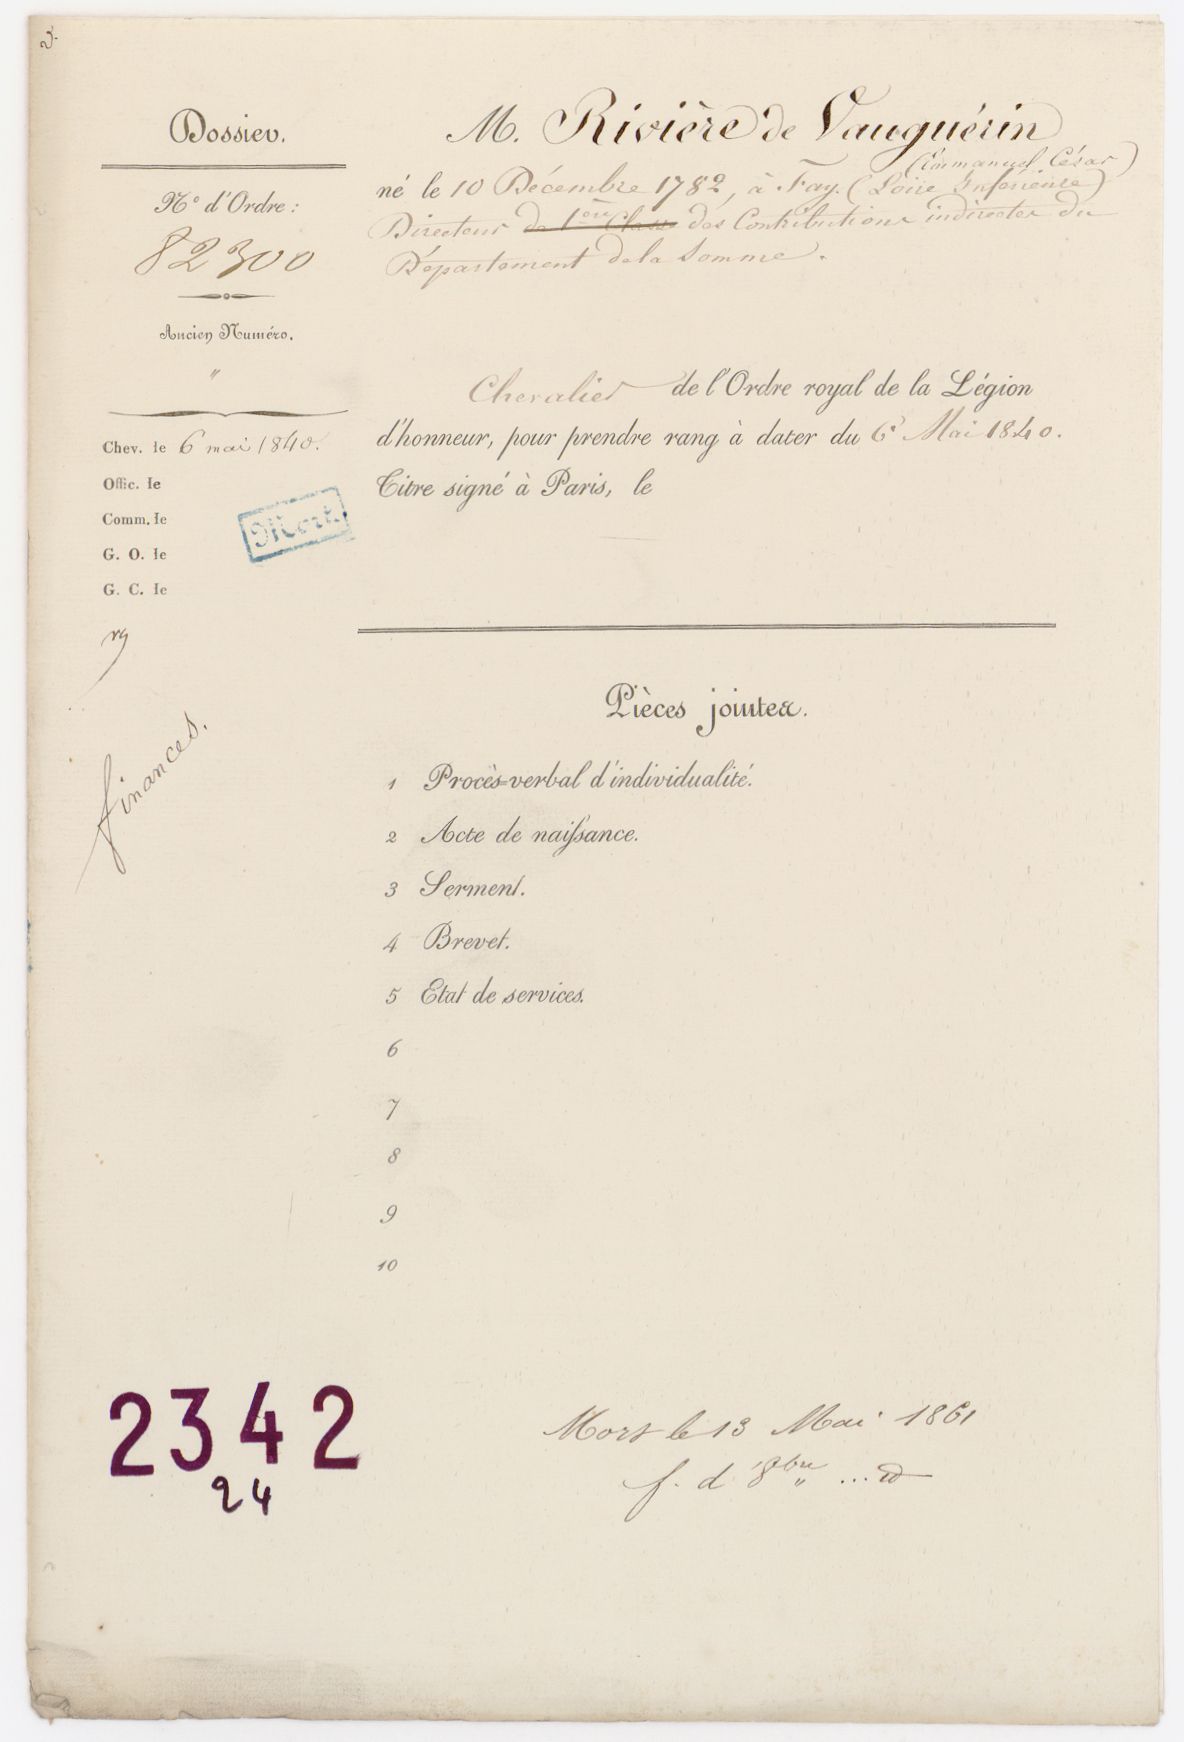 Dossier.
N° d'Ordre:
82300
Ancien Numéro.
"
Chev. le 6 mai 1840.
Offic. le
Comm. le
G. O. le
G. C. le
Mort
finances.
M. Rivière de Vauguérin
(Emmanuel César)
né le 10 Décembre 1782, à Fay. (Loire Inférieure)
Directeur de 1ère Classe des Contributions indirectes du
Département de la Somme.
Chevalier de l'Ordre royal de la Légion
d'honneur, pour prendre rang à dater du 6 Mai 1840.
Titre signé à Paris, le
Pièces jointes.
1 Procès=verbal d'individualité.
2 Acte de naissance.
3 Serment.
4 Brevet.
5 Etat de services.
6
7
8
9
10
2342
24
Mort le 13 Mai 1861
f. d 8bre